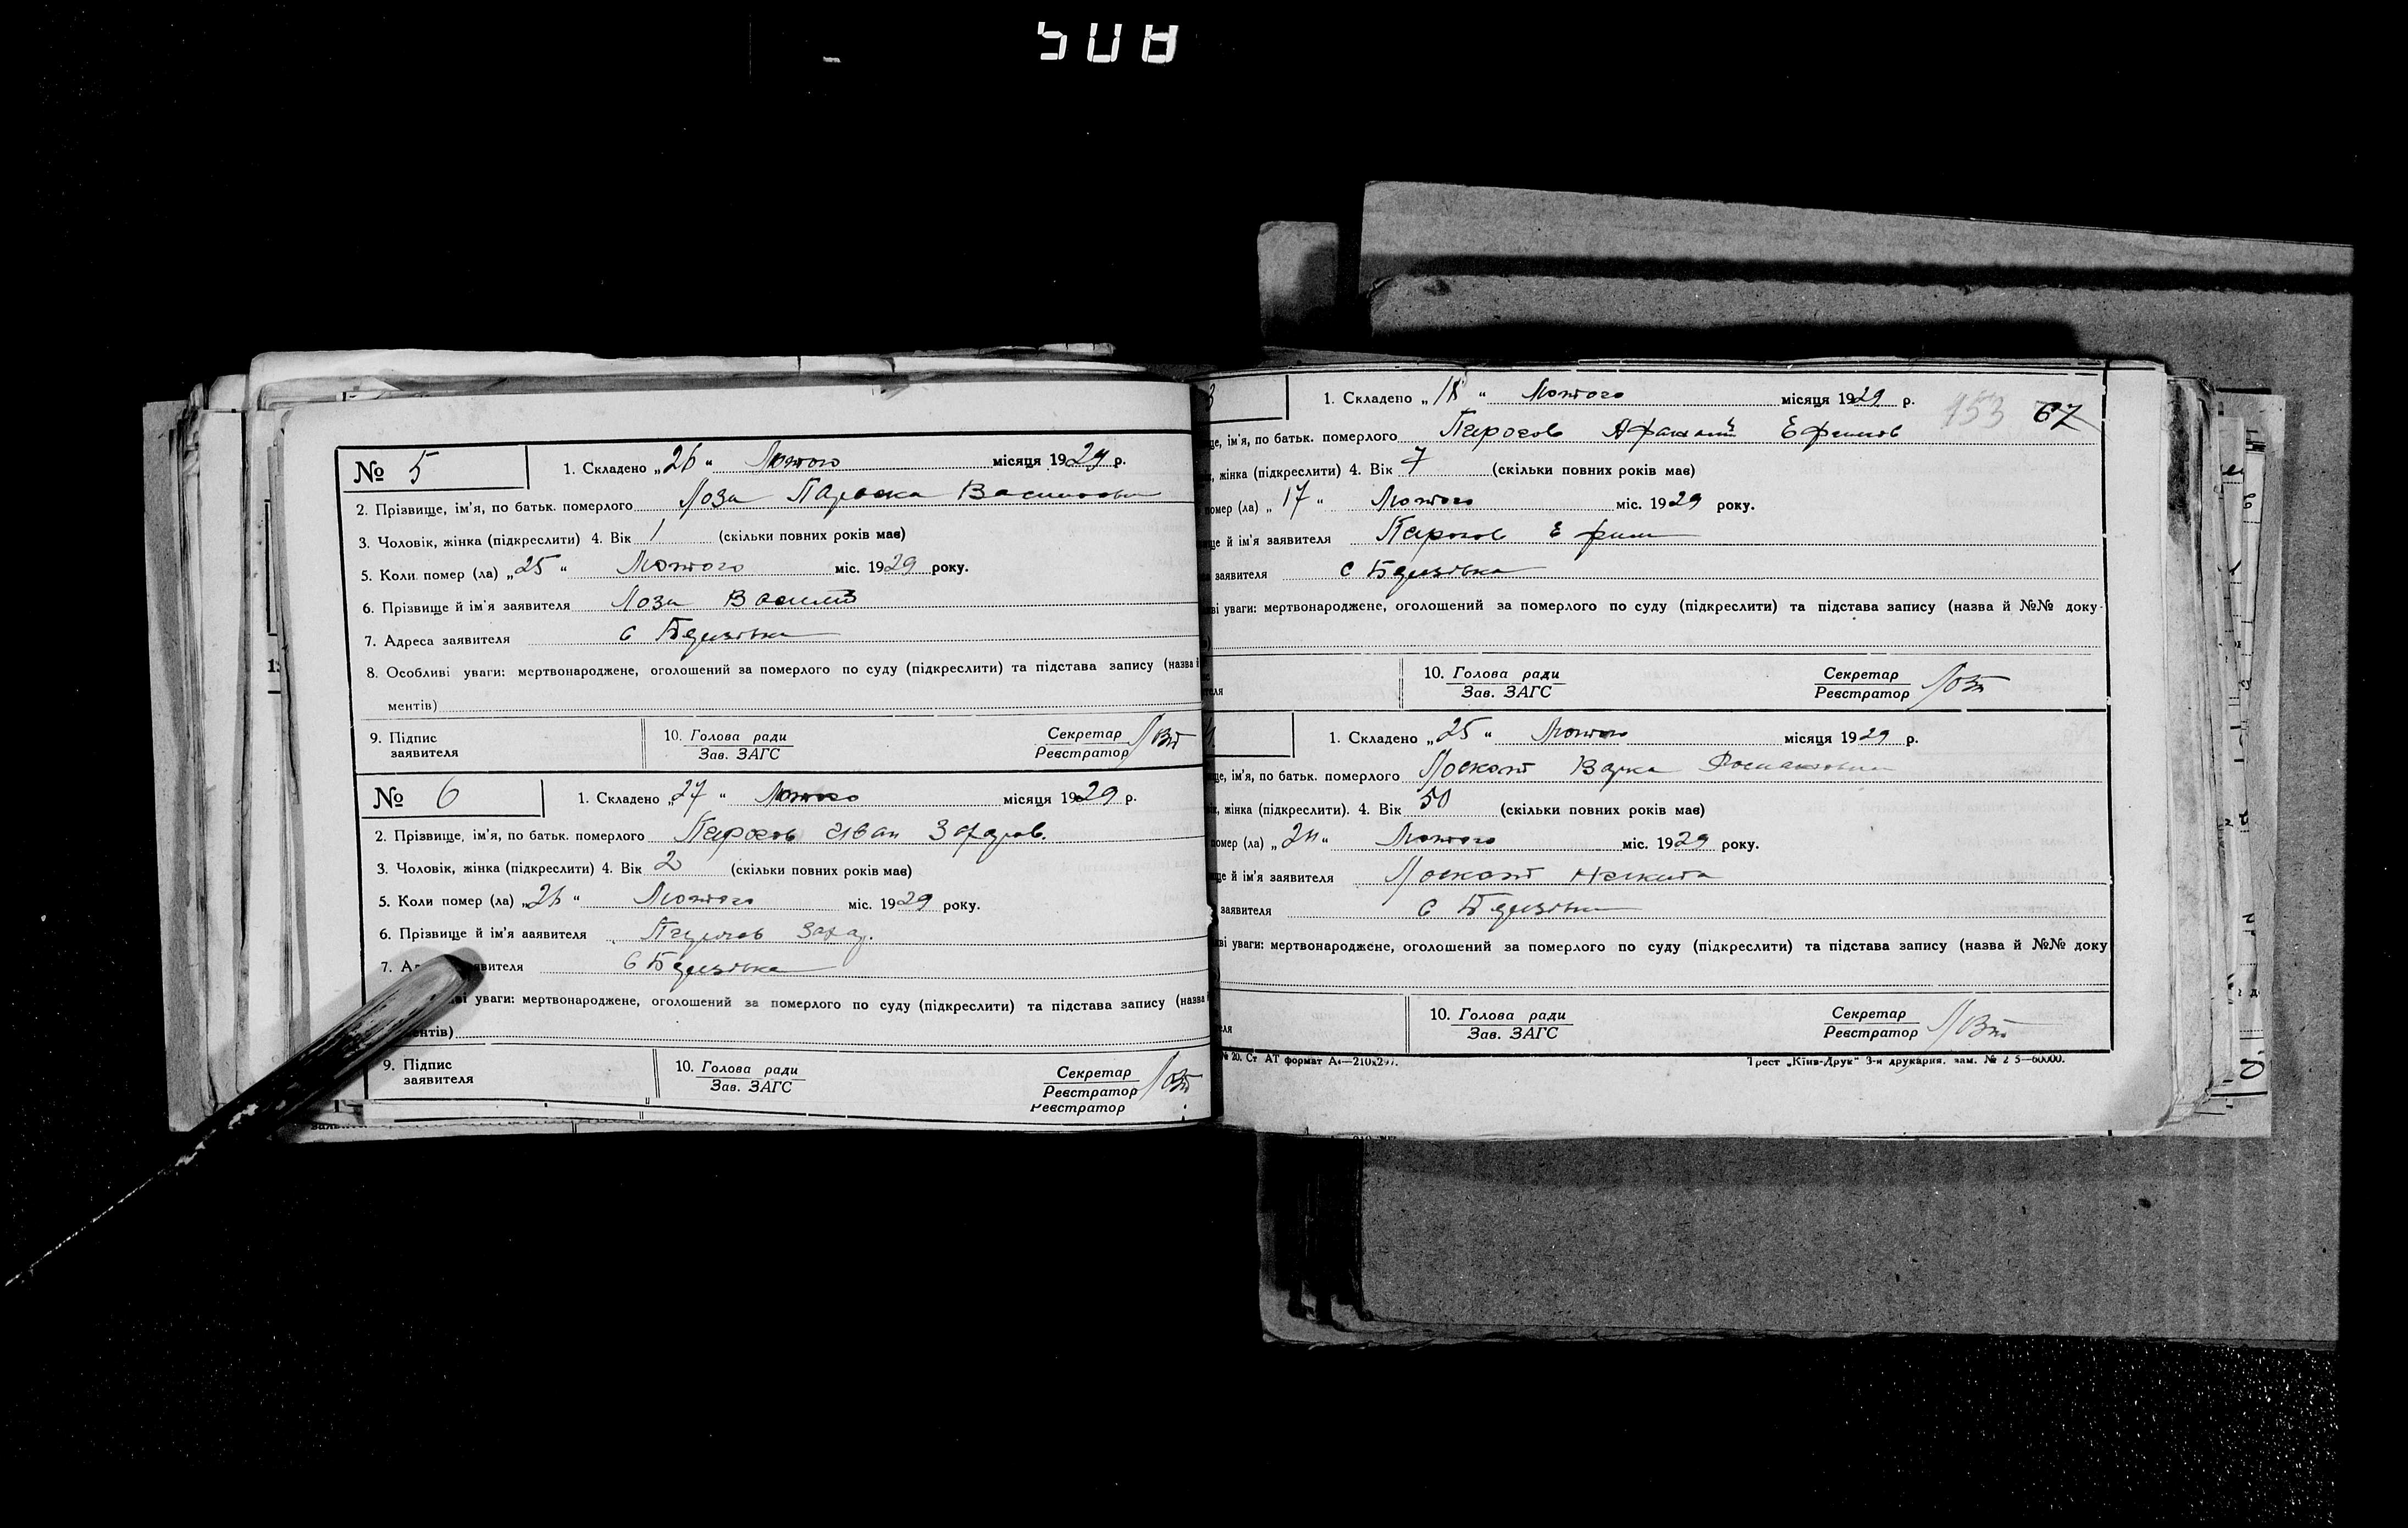 № 5
1. Складено „26“ Лютого місяця 1929 р.
2. Прізвище, ім'я, по батьк. померлого Лоза Параска Василова
3. Чоловік, жінка (підкреслити) 4. Вік 1 (скільки повних років має)
5. Коли помер (ла) „25“ Лютого міс. 1929 року.
6. Прізвище й ім'я заявителя Лоза Василь
7. Адреса заявителя с
8. Особливі уваги: мертвонароджене, оголошений за померлого по суду (підкреслити) та підстава запису (назва й
ментів)
9. Підпис заявителя
10. Голова ради Зав. ЗАГС
Секретар Реєстратор
№ 6
1. Складено „27“ Лютого місяця 1929 р.
2. Прізвище, ім'я, по батьк. померлого Пирогов Іван Захаров.
3. Чоловік, жінка (підкреслити) 4. Вік 2 (скільки повних років має)
5. Коли помер (ла) „26“ Лютого міс. 1929 року.
6. Прізвище й ім'я заявителя Пирогов Захар.
7. Ад вителя с
ві уваги: мертвонароджене, оголошений за померлого по суду (підкреслити) та підстава запису (назва й
ентів)
9. Підпис заявителя
10. Голова ради Зав. ЗАГС
Секретар Реєстратор
Реєстратор
3
1. Складено „18“ Лютого місяця 1929 р.
153 67
ще, ім'я, по батьк. померлого Пирогов Афанасій Ефимов
жінка (підкреслити) 4. Вік 7 (скільки повних років має)
помер (ла) „17“ Лютого міс. 1929 року.
ще й ім'я заявителя Пирогов Ефим
заявителя с
ві уваги: мертвонароджене, оголошений за померлого по суду (підкреслити) та підстава запису (назва й №№ доку-
10. Голова ради Зав. ЗАГС
Секретар Реєстратор
4.
1. Складено „25“ Лютого місяця 1929 р.
ще, ім'я, по батьк. померлого Лоскот Варка
жінка (підкреслити). 4. Вік 50 (скільки повних років має)
помер (ла) „24“ Лютого міс. 1929 року.
ще й ім'я заявителя Лоскот Никита
заявителя с
ві уваги: мертвонароджене, оголошений за померлого по суду (підкреслити) та підстава запису (назва й №№ доку
10. Голова ради Зав. ЗАГС
Секретар Реєстратор
№ 20. Ст АТ формат А4—210х297.
Трест „Київ-Друк“ 3-я друкарня. зам. № 2 5—60000.